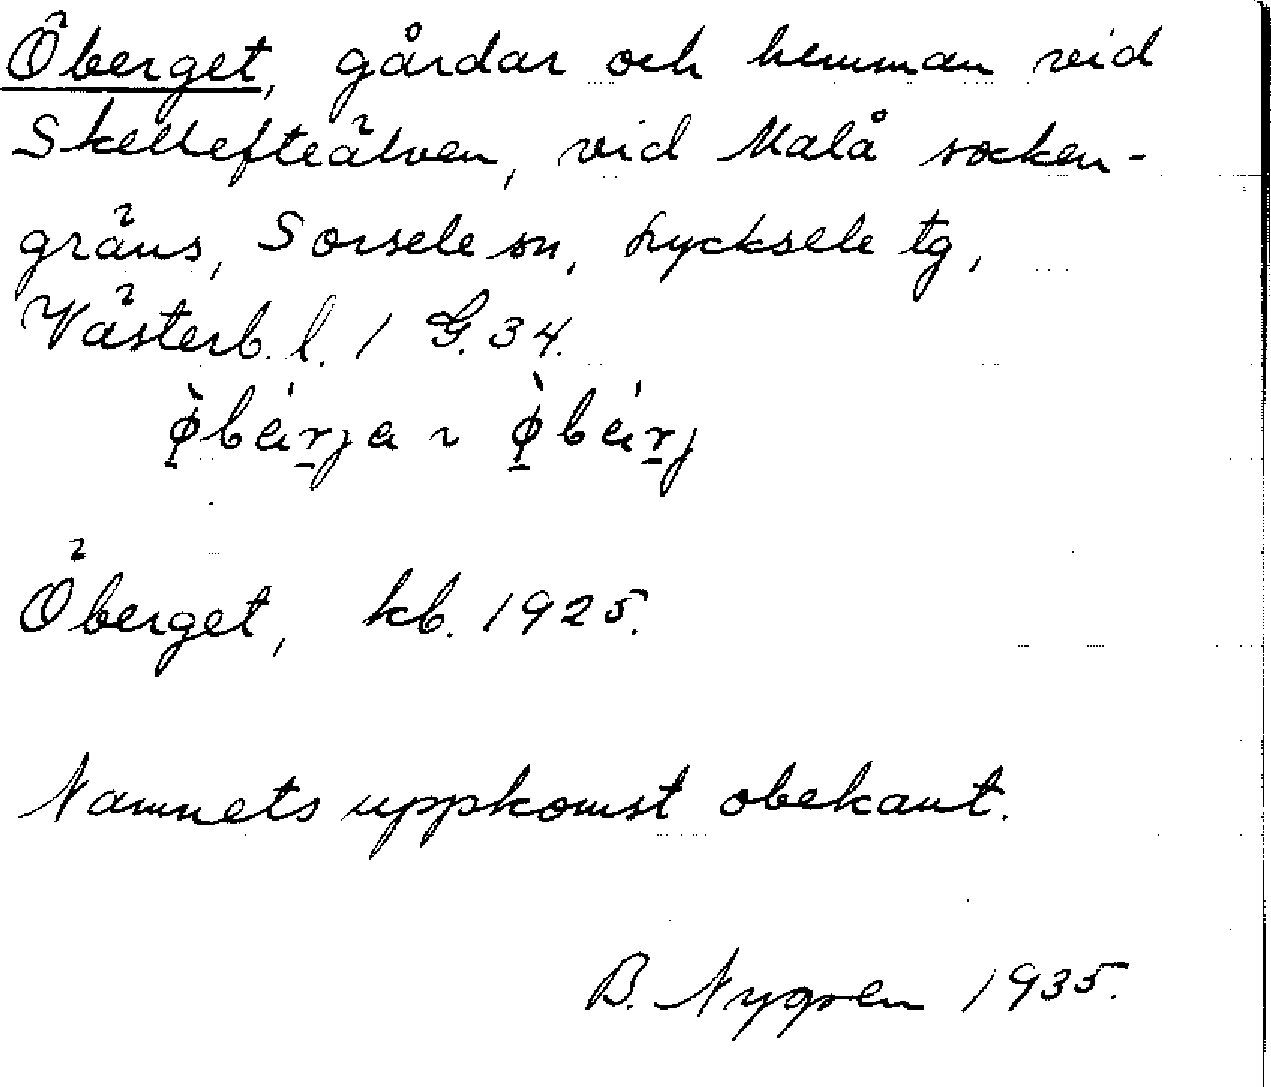 Öberget, gårdar och hemman vid
Skellefteälven, vid Malå socken-
gräns, Sorsele sn, Lycksele tg,
Västerb. l. / G. 34.
Öberget, kb. 1925.
Namnets uppkomst obekant.
B. Nygren 1935.